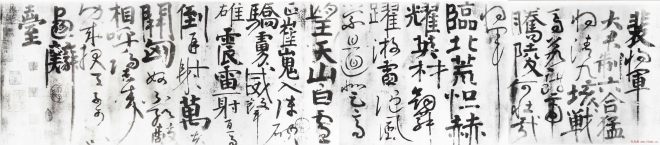 裴將軍
大君制六合猛
將清九垓戰
馬若龍虎
騰陵何壯哉
將軍
臨北荒烜赫
耀英材劍舞
躍游雷隨風
縈且迴登高
望天山白雲
正崔嵬入陣破
驕虜威聲
雄震雷一射百馬
倒再射萬夫
開匈奴不敢敵
相呼歸去來
功成報天子可
以畫麟
臺